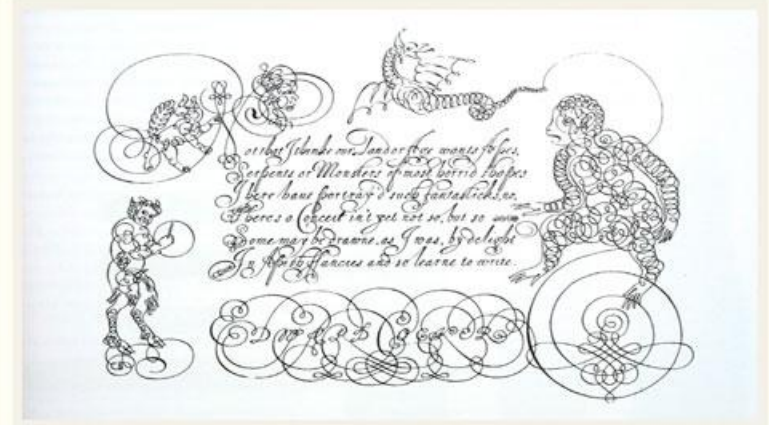 Not that I thinke mr Land or Sea wants shapes,
Serpents or Monsters of most horrid shapes
I here have portray'd such fantasticks, no,
Theres a Conceit in't yet not so, but so
Some may be drawne, as I was, by delight
In Apish Fancies and so learne to write.
EDWARD COCKER